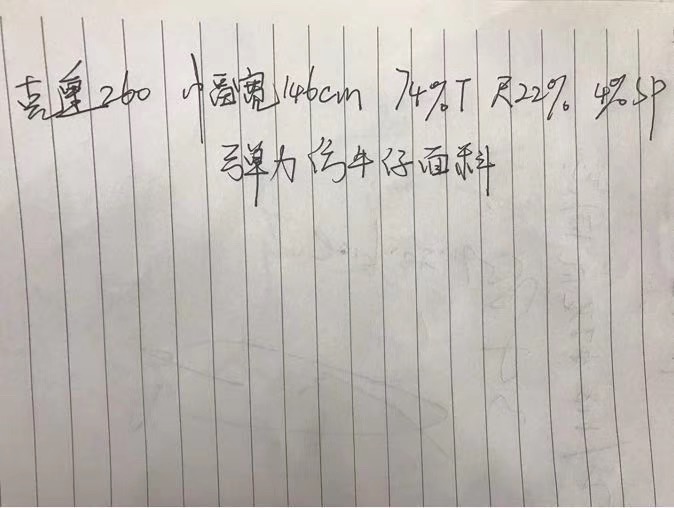 克重260 幅宽146cm 74%T R22% 4%SP
弹力仿牛仔面料